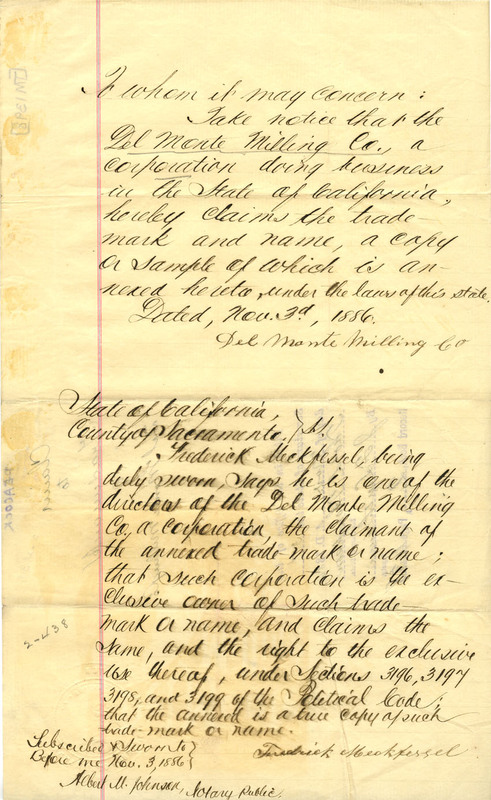 To whom it may concern:
Take notice that the
Del Monte Milling Co., a
corporation doing business
in the State of California,
hereby claims the trade-
mark and name, a copy
or sample of which is an-
nexed hereto, under the laws of this state.
Dated, Nov. 3d, 1886.
Del Monte Milling Co
State of California,
County of Sacramento. } ss.
Frederick Meckfessel, being
duly sworn, says he is one of the
directors of the Del Monte Milling
Co, a corporation, the claimant of
the annexed trade-mark or name;
that such corporation is the ex-
clusive owner of such trade-
mark or name, and claims the
same, and the right to the exclusive
use thereof, under Sections 3196, 3197
3198, and 3199 of the Political Code;
that the annexed is a true copy of such
trade-mark or name.
Fredrick Meckfessel
Subscribed & Sworn to }
Before me Nov. 3, 1886 }
Albert M. Johnson,
Notary Public.
2-438
PEACOCK